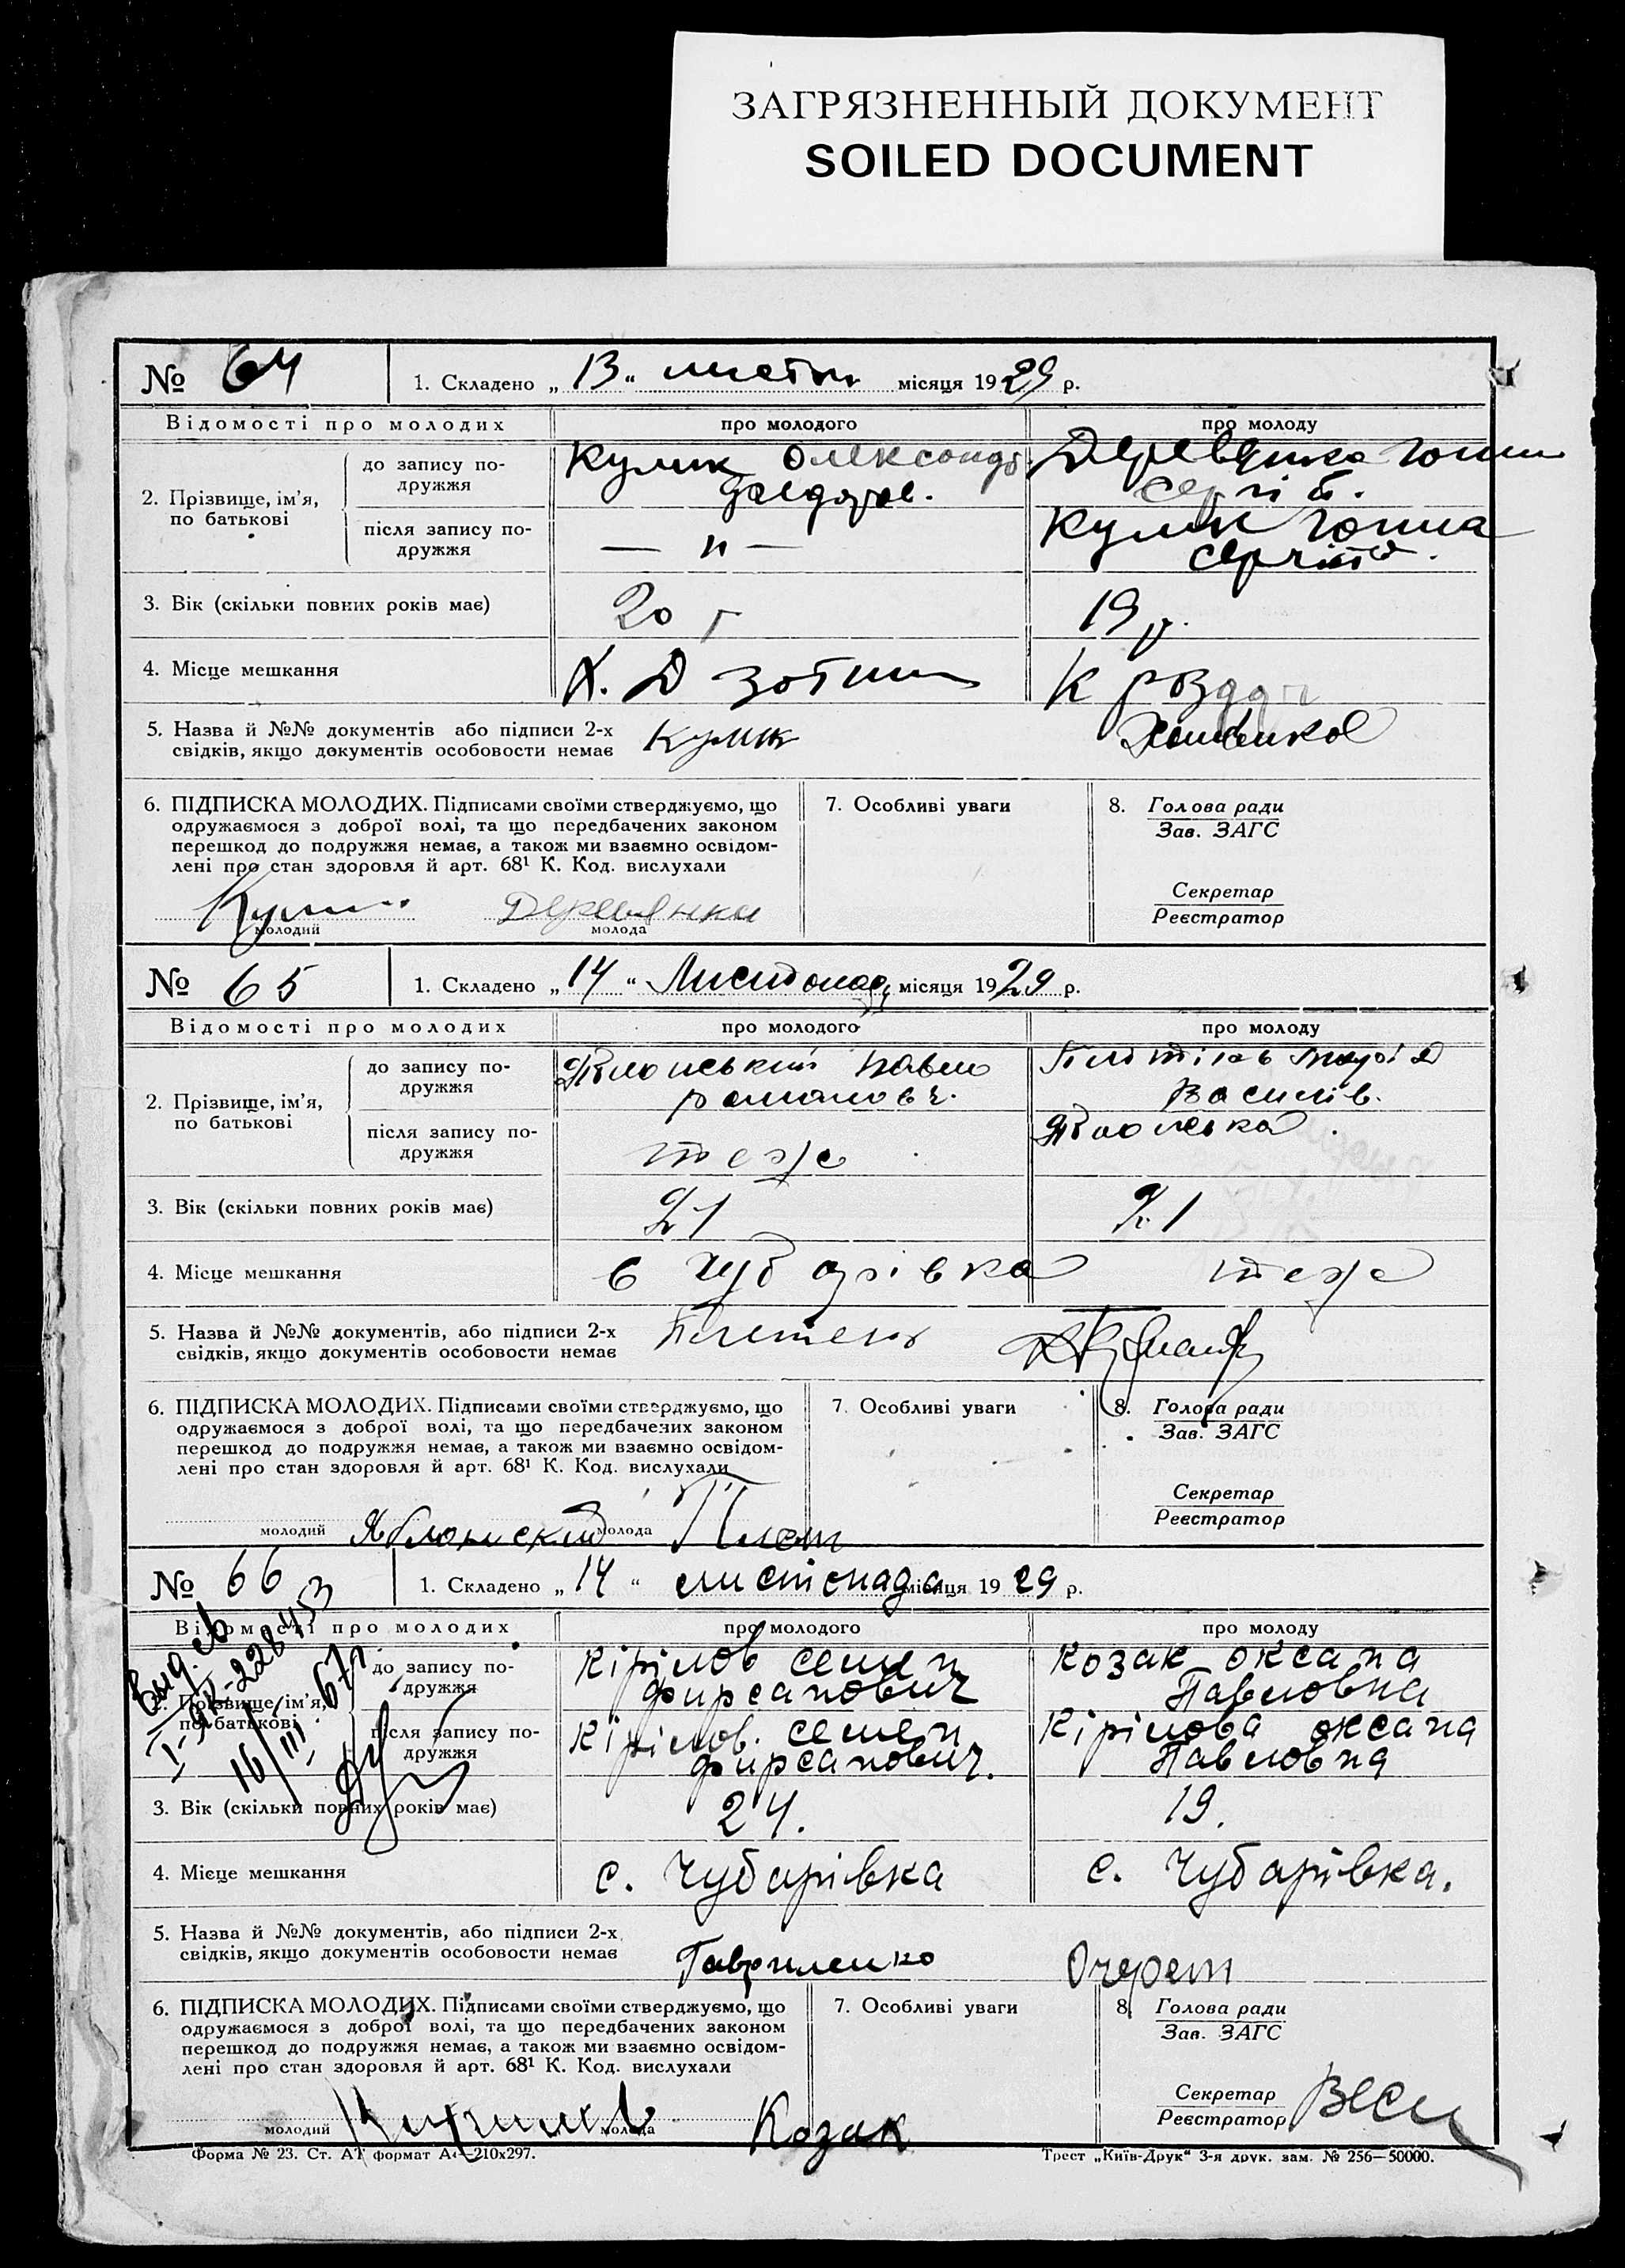 ЗАГРЯЗНЕННЫЙ ДОКУМЕНТ
SOILED DOCUMENT
№ 64
1. Складено „ 13 “ листоп місяця 1929 р.
Відомості про молодих
про молодого
про молоду
2. Прізвище, ім’я, по батькові
до запису подружжя
Кулик Олександр
Деревянко
Сергій.
після запису подружжя
— " —
Кулик
3. Вік (скільки повних років має)
20 г
19 р.
4. Місце мешкання
К розд
5. Назва й №№ документів або підписи 2-х
свідків, якщо документів особовости немає
Кулик
6. ПІДПИСКА МОЛОДИХ. Підписами своїми стверджуємо, що
одружаємося з доброї волі, та що передбачених законом
перешкод до подружжя немає, а також ми взаємно освідом-
лені про стан здоровля й арт. 68¹ К. Код. вислухали
7. Особливі уваги
8. Голова ради
Зав. ЗАГС
Секретар
Реєстратор
Деревянки
молодий
молода
№ 65
1. Складено „ 14 “ Листопад місяця 1929 р.
Відомості про молодих
про молодого
про молоду
2. Прізвище, ім’я, по батькові
до запису подружжя
Яблонський Павло
романовч.
Василів.
після запису подружжя
теже
Яблонська
3. Вік (скільки повних років має)
21
21
4. Місце мешкання
с Чубарівка
теже
5. Назва й №№ документів, або підписи 2-х
свідків, якщо документів особовости немає
6. ПІДПИСКА МОЛОДИХ. Підписами своїми стверджуємо, що
одружаємося з доброї волі, та що передбачених законом
перешкод до подружжя немає, а також ми взаємно освідом-
лені про стан здоровля й арт. 68¹ К. Код. вислухали
7. Особливі уваги
8. Голова ради
Зав. ЗАГС
Секретар
Реєстратор
молодий Яблонский молода Плет
№ 66
1. Складено „ 14 “ листопада місяця 1929 р.
Відомості про молодих
про молодого
про молоду
Выд. св
16/III 67
2. Прізвище, ім’я, по батькові
до запису подружжя
Кірілов Семен
Фирсанович
Козак Оксана
Павловна
після запису подружжя
Кірілов. Семен
Фирсанович.
Кірілова Оксана
Павловна
3. Вік (скільки повних років має)
24.
19.
4. Місце мешкання
с. Чубарівка
с. Чубарівка.
5. Назва й №№ документів, або підписи 2-х
свідків, якщо документів особовости немає
Гавриленко
Очерет
6. ПІДПИСКА МОЛОДИХ. Підписами своїми стверджуємо, що
одружаємося з доброї волі, та що передбачених законом
перешкод до подружжя немає, а також ми взаємно освідом-
лені про стан здоровля й арт. 68¹ К. Код. вислухали
7. Особливі уваги
8. Голова ради
Зав. ЗАГС
Секретар
Реєстратор
молодий Кирилов молода Козак
Форма № 23. Ст. АТ формат А4—210x297.
Трест „Київ-Друк“ 3-я друк. зам. № 256—50000.